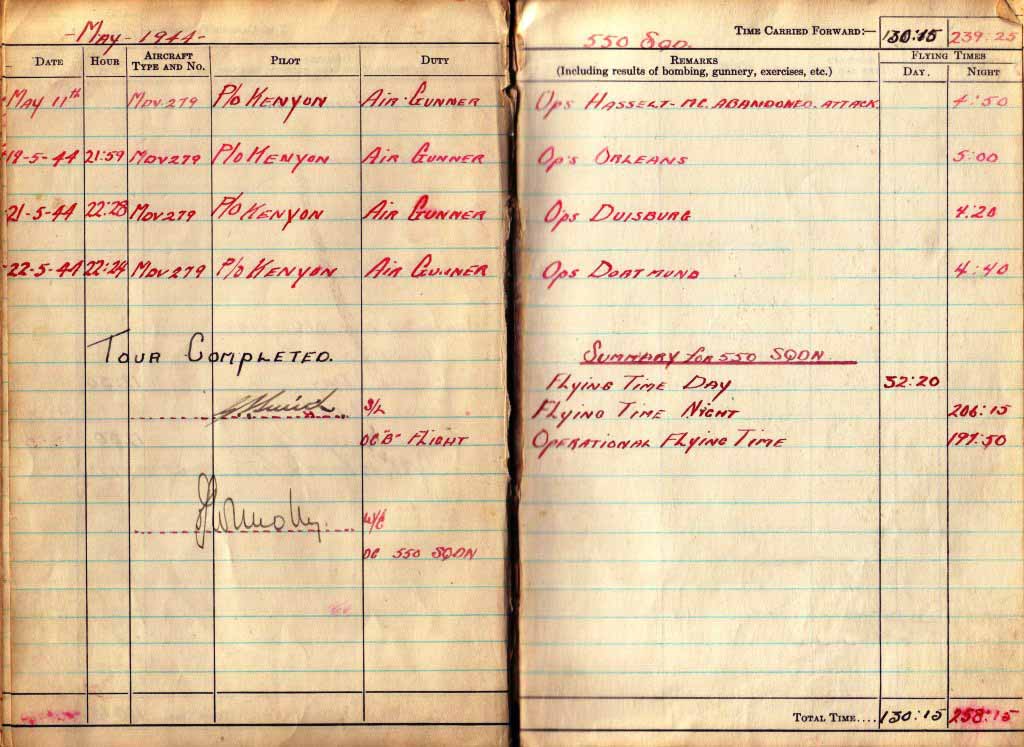 -May- 1944-
DATE HOUR AIRCRAFT TYPE AND NO. PILOT DUTY
MAY 11th MDV279 P/O KENYON AIR GUNNER
19-5-44 21:59 MDV279 P/O KENYON AIR GUNNER
21-5-44 22:28 MDV279 P/O KENYON AIR GUNNER
22-5-44 22:24 MDV279 P/O KENYON AIR GUNNER
TOUR COMPLETED.
S/L
OC "B" FLIGHT
W/C
OC 550 SQDN
550 SQD. TIME CARRIED FORWARD:— 130:15 239:25
REMARKS FLYING TIMES
(Including results of bombing, gunnery, exercises, etc.) DAY. NIGHT
OPS HASSELT- MC. ABANDONED. ATTACK. 4:50
OPS ORLEANS 5:00
OPS DUISBURG 4:20
OPS DORTMUND 4:40
SUMMARY for 550 SQDN
FLYING TIME DAY 32:20
FLYING TIME NIGHT 206:15
OPERATIONAL FLYING TIME 197:50
TOTAL TIME.... 130:15 258:15